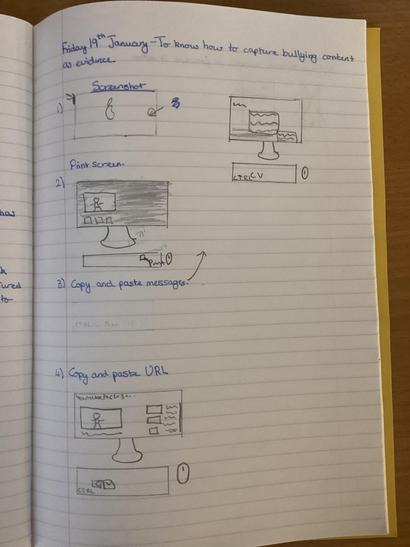 Friday 19th January - To know how to capture bullying content
as evidence.
Screenshot
1)
CTRL C V
Print screen.
2)
Prnt
3) Copy and paste messages.
4) Copy and paste URL
CTRL C V
has